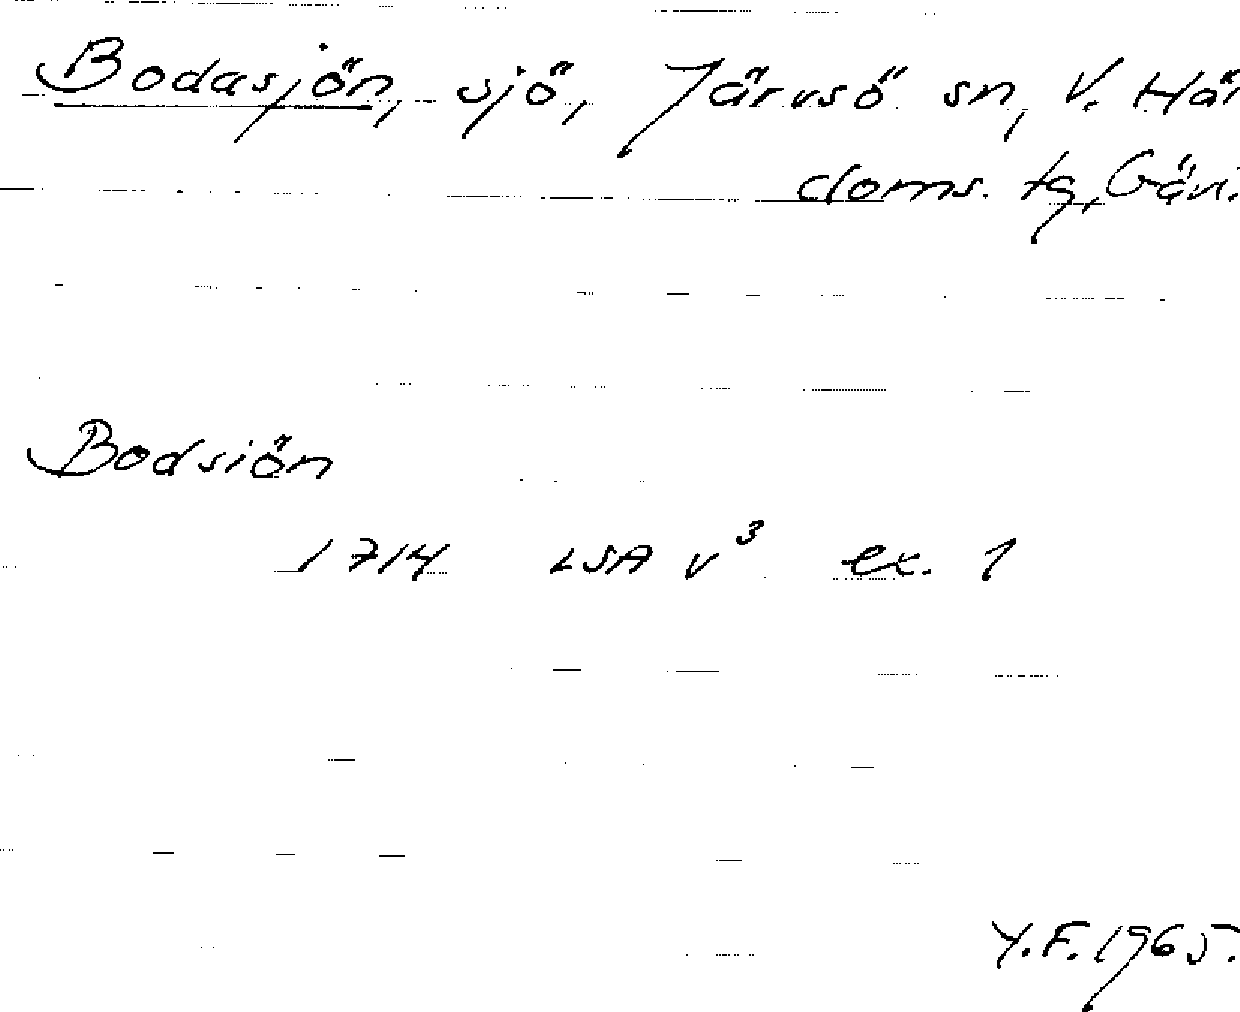 Bodasjön, sjö, Järvsö sn, V. Häl
doms. tg, Gävl.
Bodsiön
1714 LSA V³ ex. 1
Y.F. 1965.